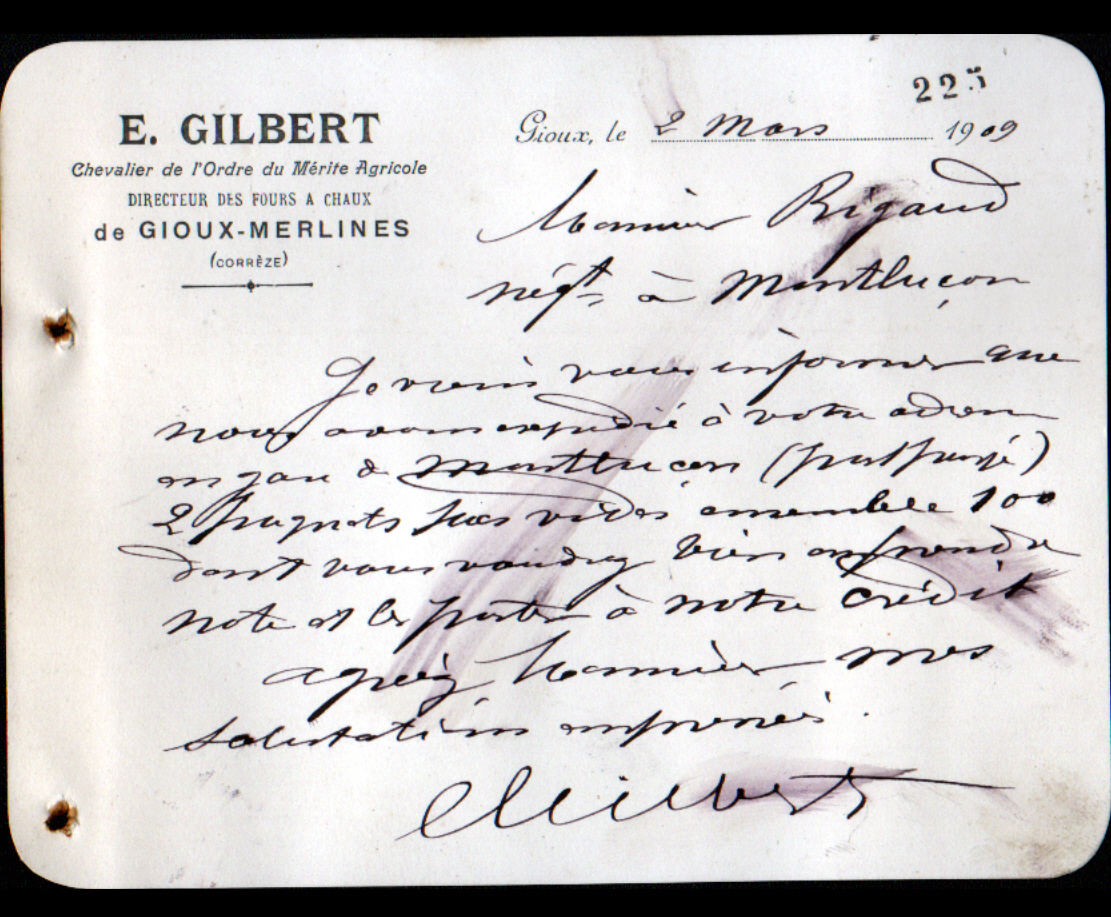 225
E. GILBERT
Chevalier de l'Ordre du Mérite Agricole
DIRECTEUR DES FOURS A CHAUX
de GIOUX-MERLINES
(CORRÈZE)
Gioux, le 2 Mars 1909
Monsieur Rigaud
négt à Montluçon
Je viens vous informer que
nous avons expédié à votre adresse
en gare de Montluçon (port payé)
2 paquets sacs vides ensemble 100
dont vous voudrez bien en prendre
note et les porter à notre crédit
agréez, Monsieur, mes
salutations empressées.
EGilbert